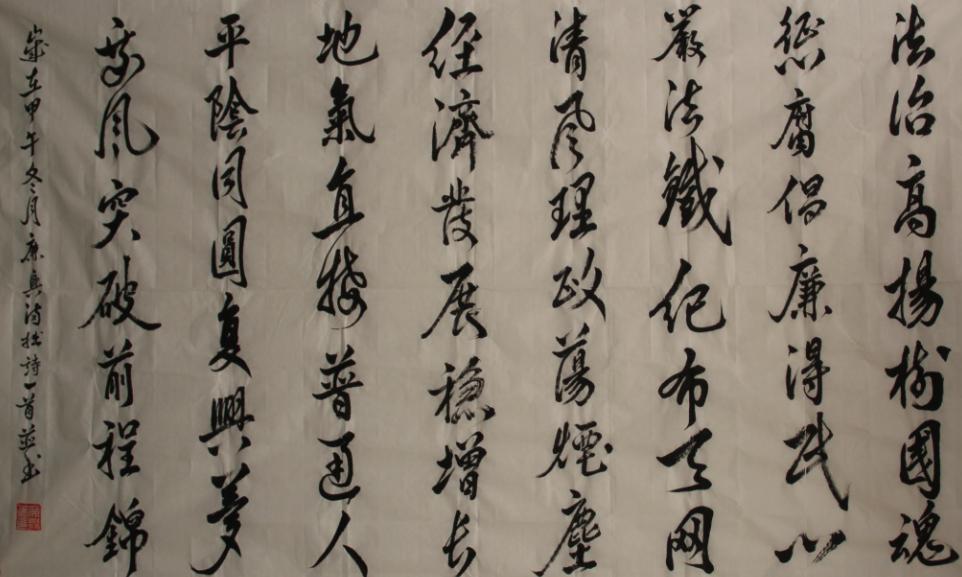 法治高揚樹國魂
惩腐倡廉得民心
嚴法鐵紀布天网
清風理政蕩煙塵
經濟發展穩增长
地氣直接普通人
平陰同圓复興夢
乘風突破前程錦
歲在甲午冬月拙詩一首並书